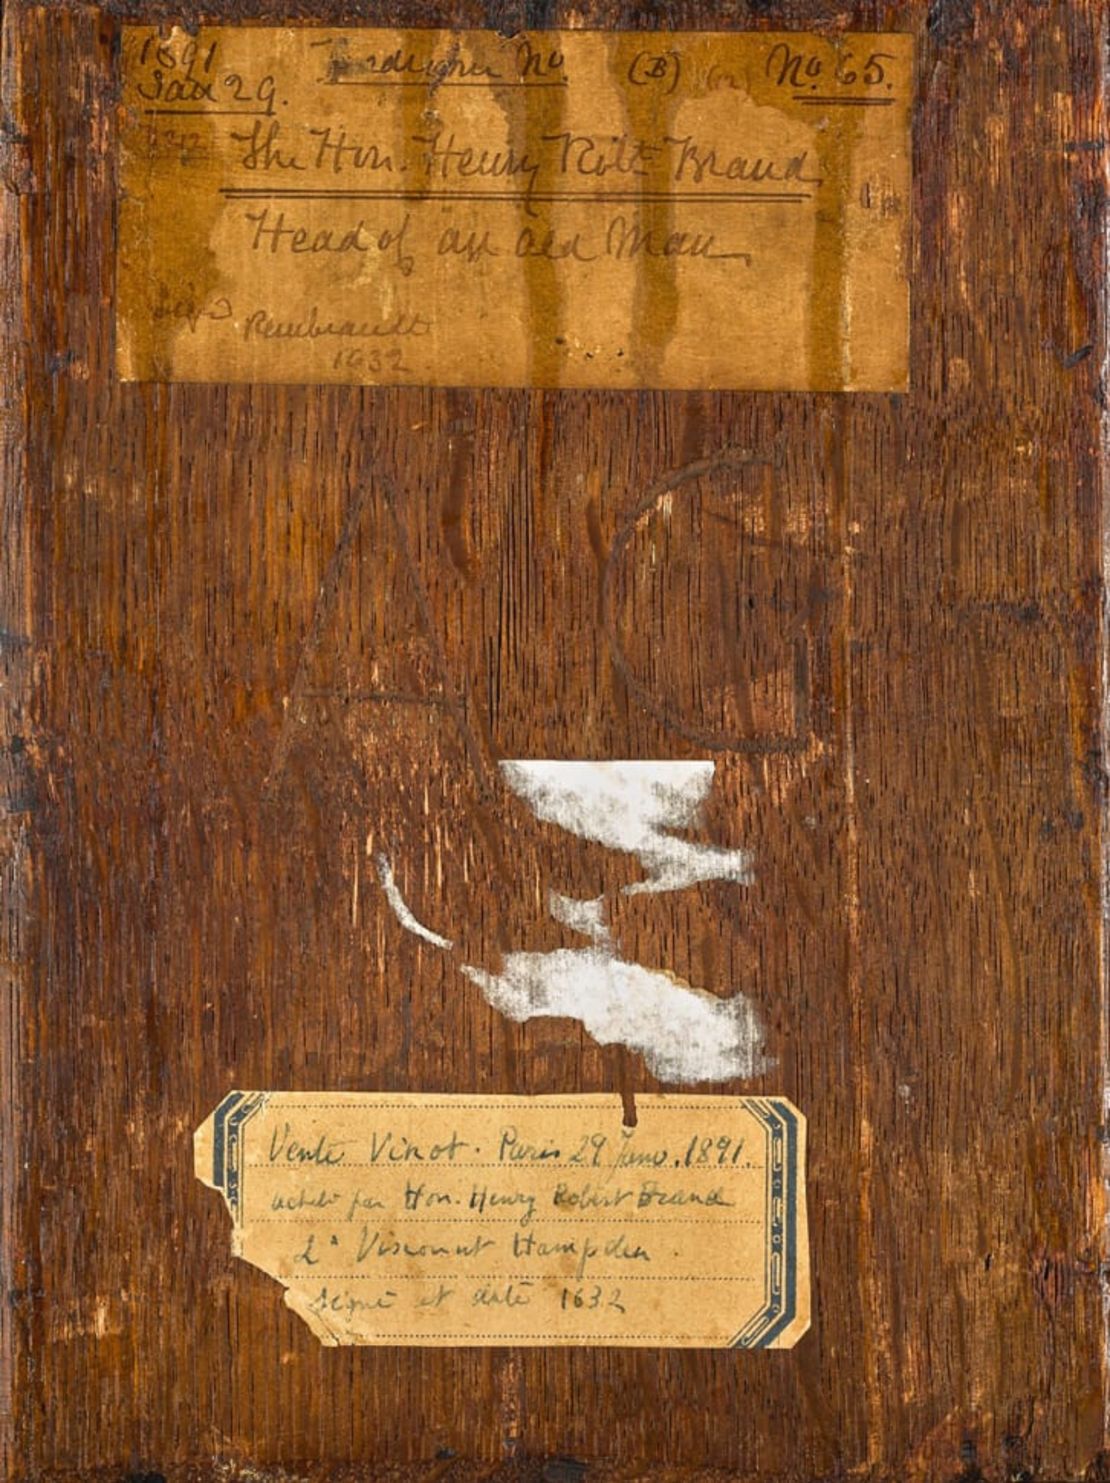 1891 No. (B) No. 65.
Jan 29.
The Hon. Henry Robt. Brand
Head of an old Man
Sigd Rembrandt
1632
A G
Vente Vinot. Paris 29 Janv. 1891.
acheté par Hon. Henry Robert Brand
2d Viscount Hampden.
signé et daté 1632